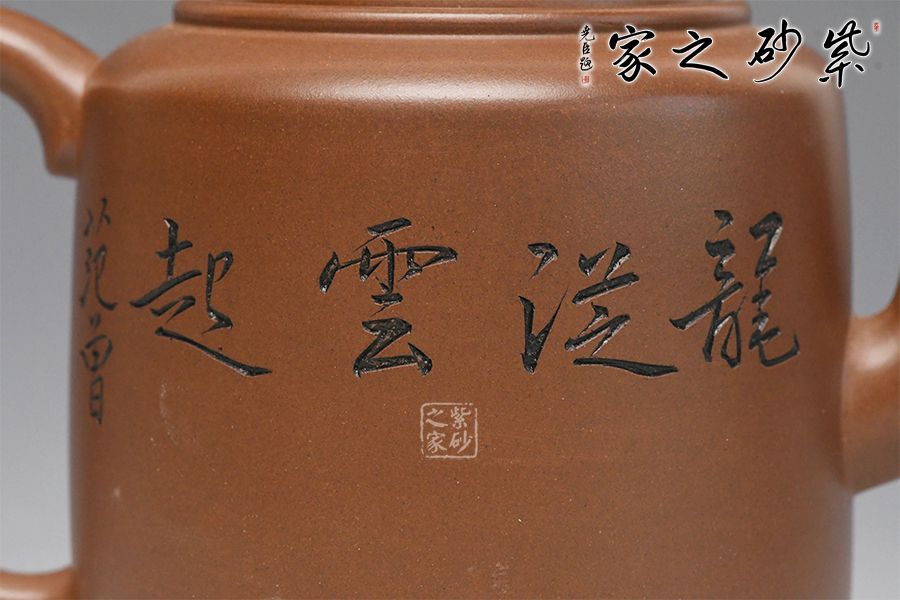 紫砂之家
堯臣題
龍從雲起
紫砂之家